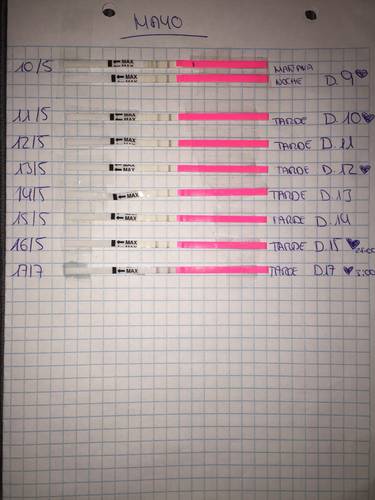 MAYO
10/5 ← MAX MAÑANA
← MAX NOCHE D. 9
11/5 ← MAX TARDE D. 10
12/5 ← MAX TARDE D. 11
13/5 ← MAX TARDE D. 12
14/5 MAX TARDE D. 13
15/5 ← MAX TARDE D. 14
16/5 ← MAX TARDE D. 15
17/7 ← MAX TARDE D. 17